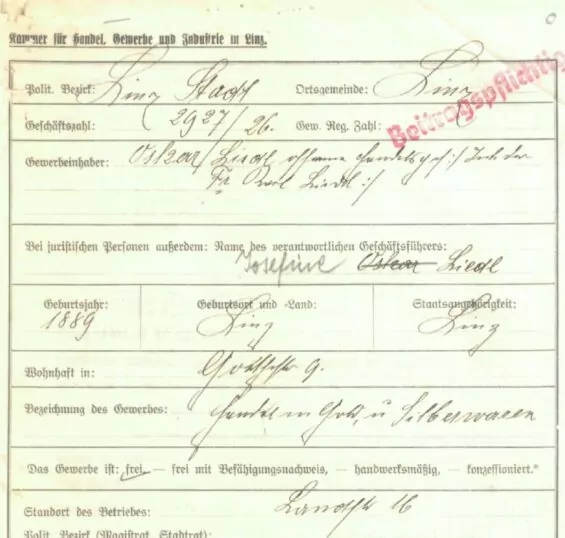 Kammer für Handel, Gewerbe und Industrie in Linz.
Beitragspflichtig
Polit. Bezirk: Linz Stadt Ortsgemeinde: Linz
Geschäftszahl: 2927/26. Gew. Reg. Zahl:
Gewerbeinhaber: Oskar Liedl offene Handelsges:/ Inh. der
Fr. Karl Liedl:/
Bei juristischen Personen außerdem: Name des verantwortlichen Geschäftsführers:
Josefine Oskar Liedl
Geburtsjahr: Geburtsort und -Land: Staatsangehörigkeit:
1889 Linz Linz
Wohnhaft in: 9.
Bezeichnung des Gewerbes: Handel m Gold, u Silberwaren
Das Gewerbe ist: frei, — frei mit Befähigungsnachweis, — handwerksmäßig, — konzessioniert.*
Standort des Betriebes: Landstr 16
Polit. Bezirk (Magistrat, Stadtrat):